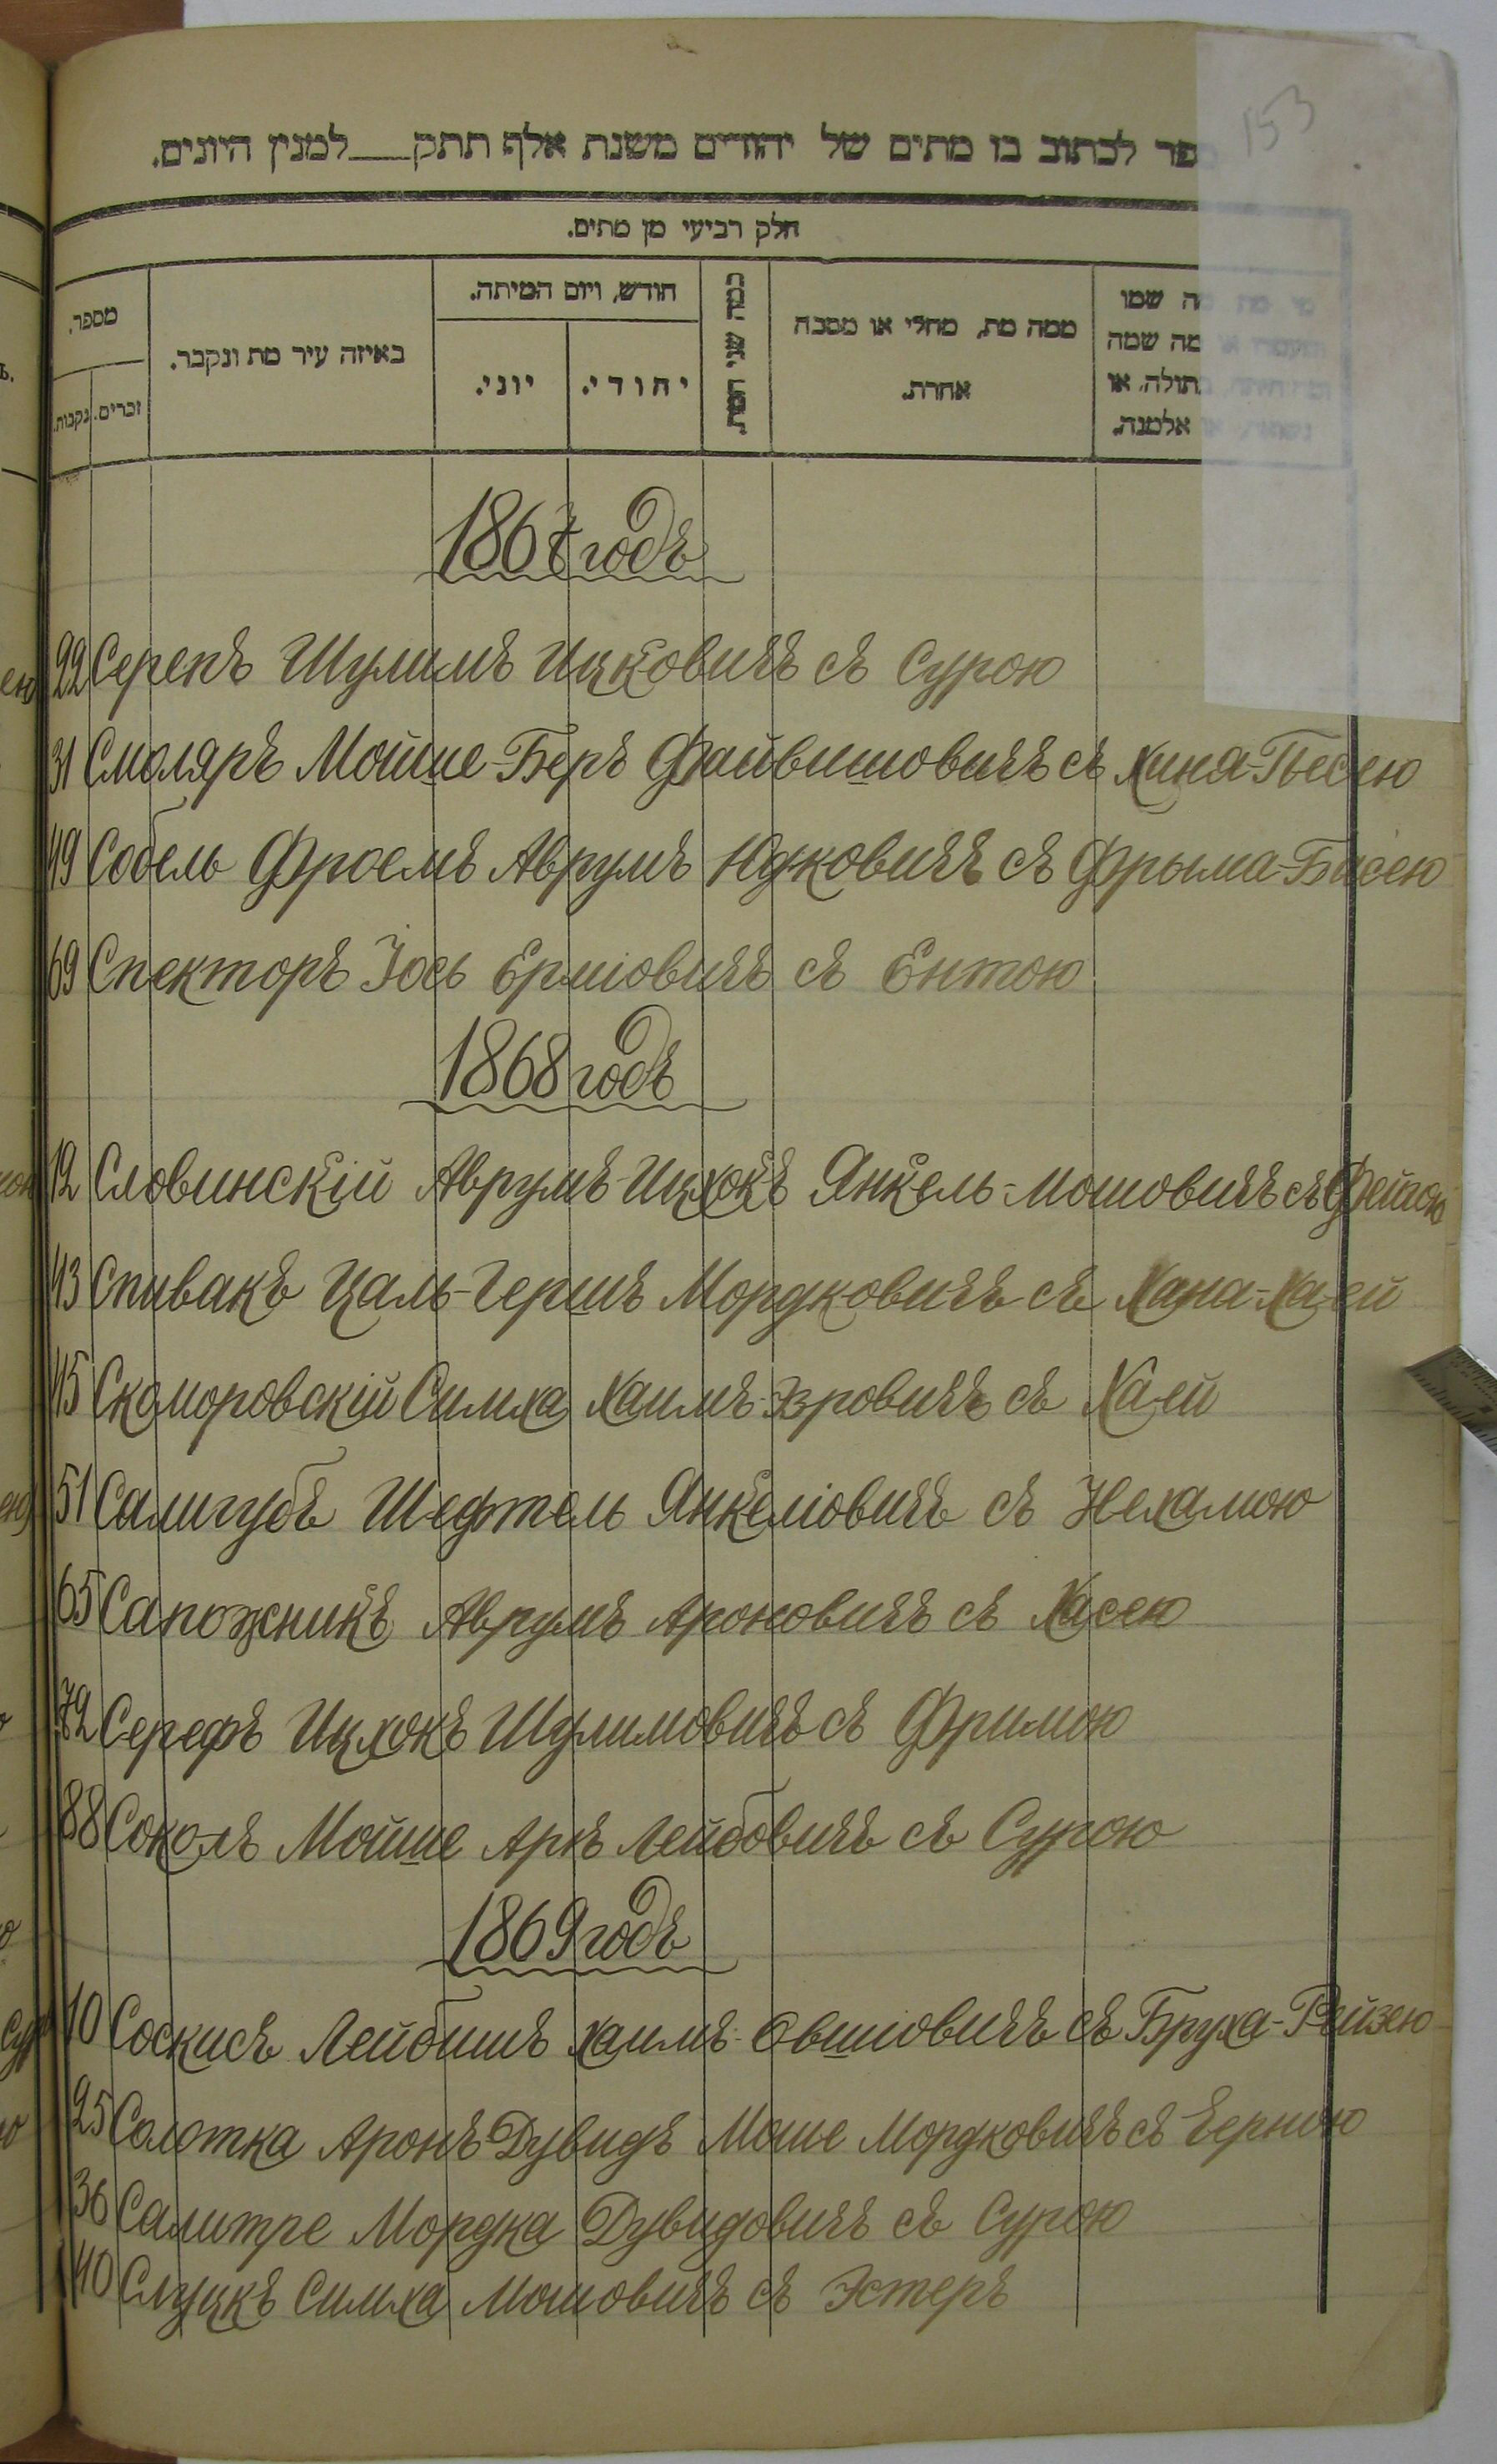 153
ספר לכתוב בו מתים של יהודים משנת אלף תתק למנין היונים.
חלק רביעי מן מתים.
מספר.
זכרים.
נקבות.
באיזה עיר מת ונקבר.
חודש, ויום המיתה.
יהודי.
יוני.
כמה שני המת.
ממה מת, מחלי או מסבה
אחרת.
מי מת מה שמו
או מה שמה
בתולה, או
או אלמנה.
1867 годъ
22 Серепъ Шулимъ Ицковичъ съ Сурою
31 Смоляръ Мойше-Беръ Файвишовичъ съ Хиня-Песею
49 Собель Фроемъ Аврумъ Юдковичъ съ Фрыма-Басею
69 Спекторъ Іось Ерміовичъ съ Ентою
1868 годъ
12 Словинскій Аврумъ-Ицхокъ Янкель-Мошовичъ съ Фейгою
43 Спивакъ Цаль-Гершъ Мордковичъ съ Хана-Хаей
45 Скоморовскій Симха Хаимъ-Эзровичъ съ Хаей
51 Салигубъ Шефтель Янкеліовичъ съ Нехамою
65 Сапожникъ Аврумъ Ароновичъ съ Хасею
72 Серефъ Ицхокъ Шулимовичъ съ Фримою
88 Соколъ Мойше Аръ Лейбовичъ съ Сурою
1869 годъ
10 Соскисъ Лейбишъ Хаимъ-Овшіовичъ съ Бруха-Рейзею
25 Солотка Аронъ Дувидъ Моше Мордковичъ съ
36 Салитре Мордка Дувидовичъ съ Сурою
40 Слуцкъ Симха Мошовичъ съ Эстеръ